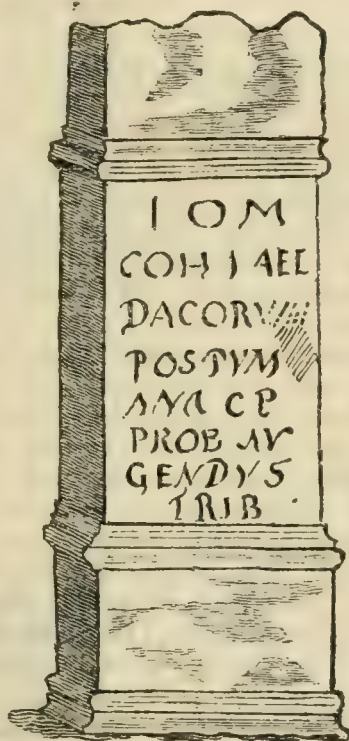 I O M
COH I AEL
DACORV
POSTVM
ANA C P
PROB AV
GENDVS
TRIB